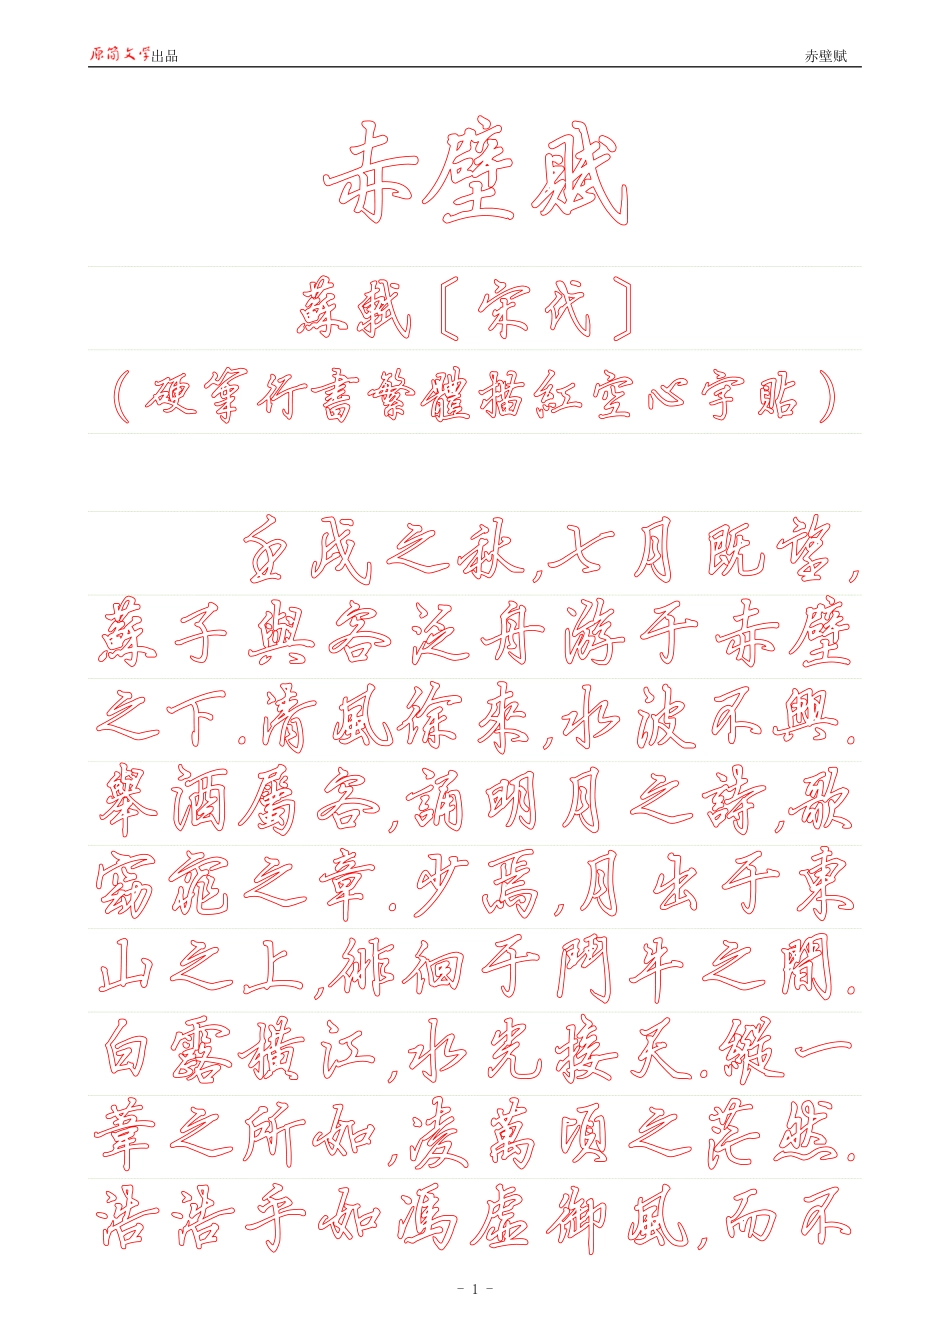 原简文学出品 赤壁赋
赤壁賦
蘇軾〔宋代〕
（硬筆行書繁體描紅空心字貼）
壬戌之秋,七月既望,
蘇子與客泛舟游于赤壁
之下.清風徐來,水波不興.
舉酒屬客,誦明月之詩,歌
窈窕之章.少焉,月出于東
山之上,徘徊于鬥牛之間.
白露橫江,水光接天.縱一
葦之所如,凌萬頃之茫然.
浩浩乎如馮虛御風,而不
- 1 -